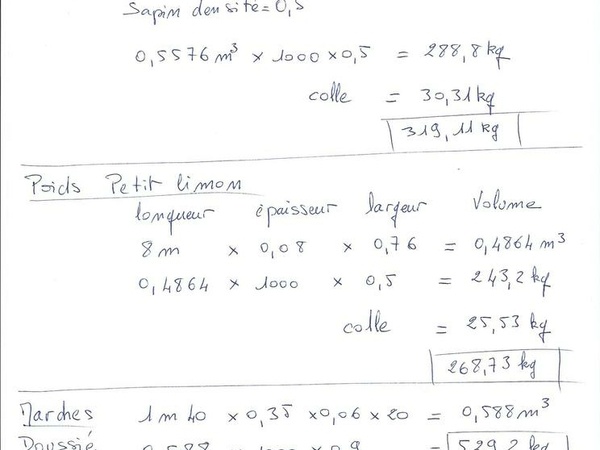 Sapin densité = 0,5
0,5576 m³ x 1000 x 0,5 = 288,8 kg
colle = 30,31 kg
319,11 kg
Poids Petit limon
longueur épaisseur largeur Volume
8 m x 0,08 x 0,76 = 0,4864 m³
0,4864 x 1000 x 0,5 = 243,2 kg
colle = 25,53 kg
268,73 kg
Marches 1 m 40 x 0,35 x 0,06 x 20 = 0,588 m³
Doussié 0,588 x 1000 x 0,9 = 529,2 kg